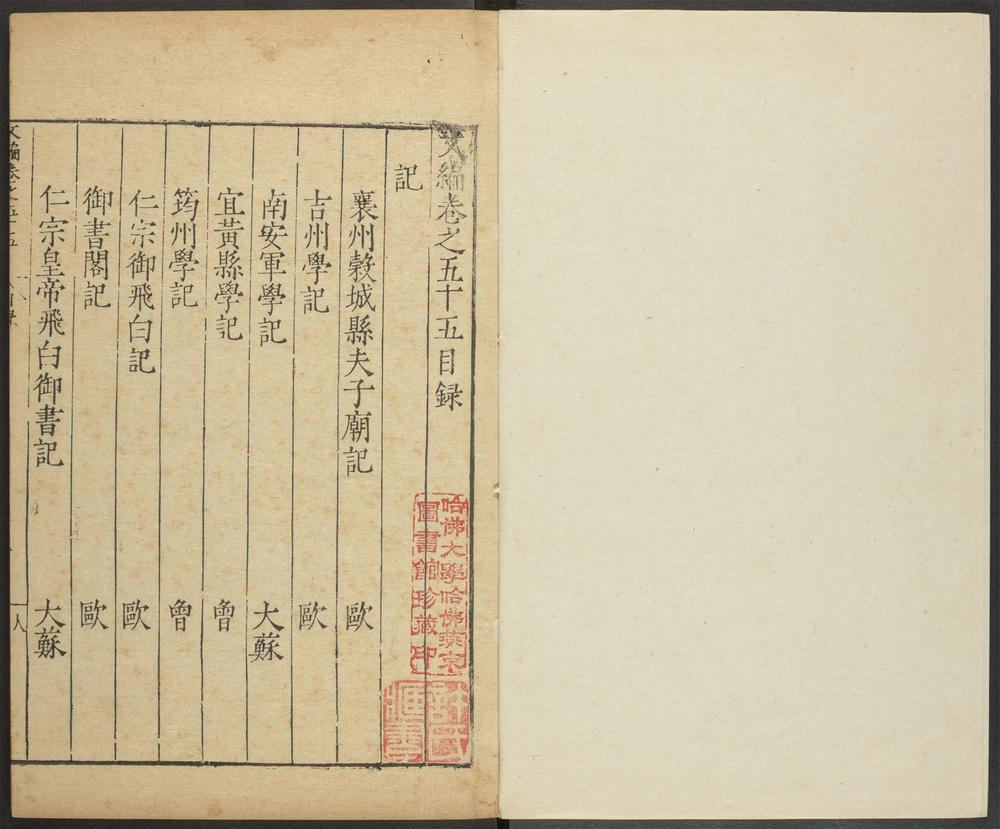 文編卷之五十五目録
記
襄州穀城縣夫子廟記 歐
吉州學記 歐
南安軍學記 大蘇
宜黃縣學記 曾
筠州學記 曾
仁宗御飛白記 歐
御書閣記 歐
仁宗皇帝飛白御書記 大蘇
文編卷之五十五 目録
哈佛大學哈佛燕京
圖書館珍藏印